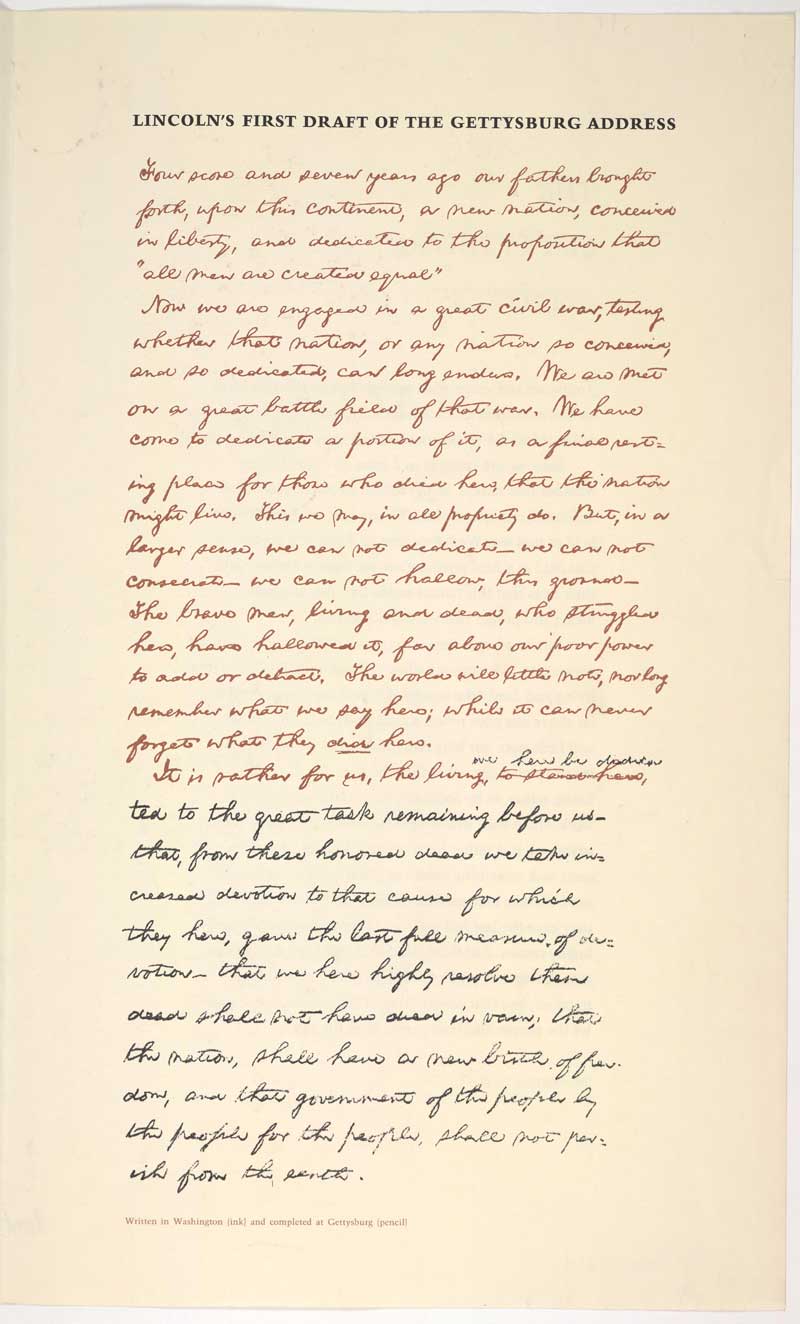 LINCOLN'S FIRST DRAFT OF THE GETTYSBURG ADDRESS
Four score and seven years ago our fathers brought
forth, upon this continent, a new nation, conceived
in liberty, and dedicated to the proposition that
"all men are created equal"
Now we are engaged in a great civil war, testing
whether that nation, or any nation so conceived,
and so dedicated, can long endure. We are met
on a great battle field of that war. We have
come to dedicate a portion of it, as a final rest=
ing place for those who died here, that the nation
might live. This we may, in all propriety do. But, in a
larger sense, we can not dedicate— we can not
consecrate— we can not hallow, this ground—
The brave men, living and dead, who struggled
here, have hallowed it, far above our poor power
to add or detract. The world will little note, nor long
remember what we say here; while it can never
forget what they did here.
we here be dedica
It is rather for us, the living, to stand here,
ted to the great task remaining before us—
that, from these honored dead we take in=
creased devotion to that cause for which
they here, gave the last full measure of de=
votion— that we here highly resolve these
dead shall not have died in vain; that
the nation, shall have a new birth of free-
dom, and that government of the people by
the people for the people, shall not per=
ish from the earth.
Written in Washington [ink] and completed at Gettysburg [pencil]